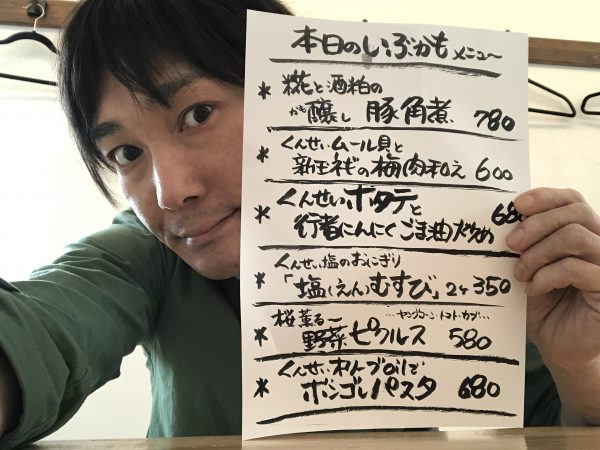 本日のいぶかもメニュー
* 糀と酒粕の
が醸し 豚角煮 780
* くんせいムール貝と
新玉ネギの梅肉和え 600
* くんせいホタテと
行者にんにくごま油炒め 68
くんせい塩のおにぎり
* 「塩(えん)むすび」2ケ 350
* 桜薫る〜 …ヤングコーン・トマト・カブ…
野菜ピクルス 580
* くんせいオリーブoilで
ボンゴレパスタ 680